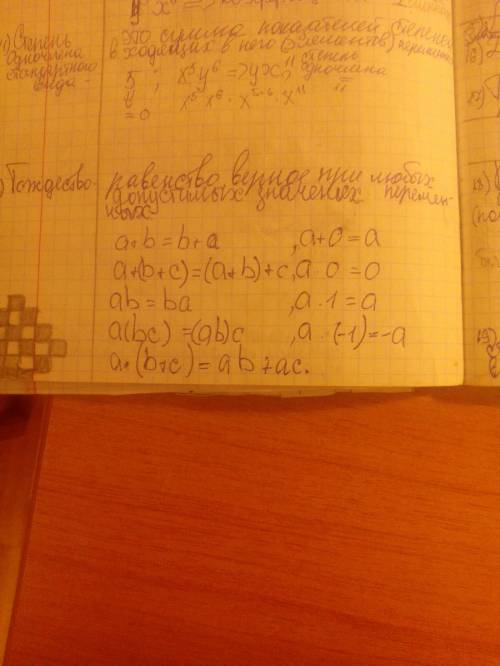 Степень
одночлена
стандартного
вида -
это сумма показателей степеней
входящих в него (элементов) переменных
5 ; x⁵y⁶ => yx¹¹ степень
одночлена
11
x⁵ x⁶ · x⁵⁺⁶ · x¹¹
= 0
Тождество- равенство верное при любых
допустимых значениях перемен-
ных
a+b=b+a , a+0=a
a+(b+c)=(a+b)+c, a·0=0
ab=ba , a·1=a
a(bc)=(ab)c , a·(-1)=-a
a·(b+c)=ab+ac.